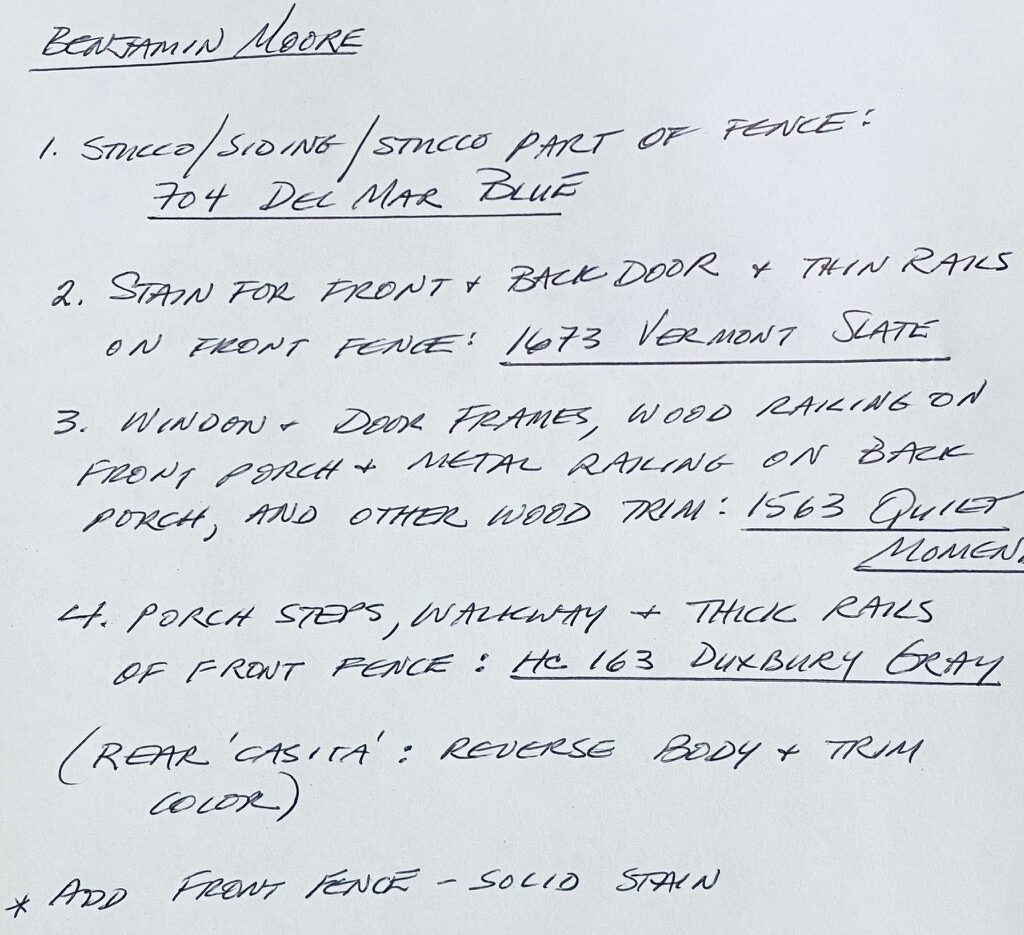 BENJAMIN MOORE
1. STUCCO/SIDING/STUCCO PART OF FENCE:
704 DEL MAR BLUE
2. STAIN FOR FRONT + BACK DOOR + THIN RAILS
ON FRONT FENCE: 1673 VERMONT SLATE
3. WINDOW + DOOR FRAMES, WOOD RAILING ON
FRONT PORCH + METAL RAILING ON BACK
PORCH, AND OTHER WOOD TRIM: 1563 QUIET
MOMEN
4. PORCH STEPS, WALKWAY + THICK RAILS
OF FRONT FENCE: HC 163 DUXBURY GRAY
(REAR 'CASITA': REVERSE BODY + TRIM
COLOR)
* ADD FRONT FENCE - SOLID STAIN